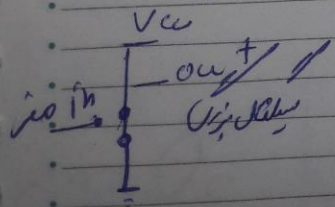 Vcc
out +
in
سیگنال بزرگ